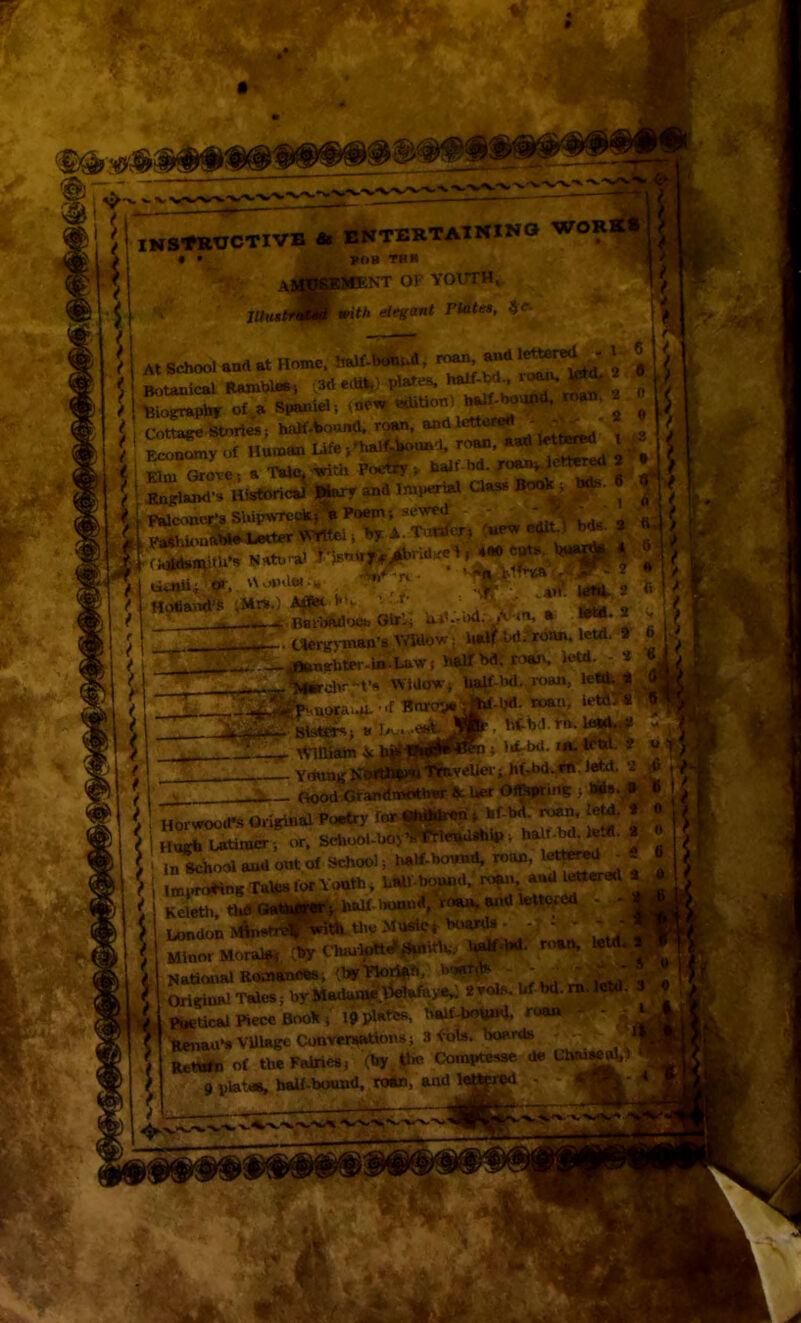 INSTRUCTIVE & ENTERTAINING WORKS
FOR THE
AMUSEMENT OF YOUTH,
Illustrated with elegant Plates, &c.
At School and at Home, half-bound, roan, and lettered - 1 6
Botanical Rambles; (3d edit.) plates, half-bd., roan, letd. 2 6
Biography of a Spaniel; (new edition) half-bound, roan, 2 0
Cottage Stories; half-bound, roan, and lettered - - - 2 0
Economy of Human Life; half-bound, roan, and lettered 1 3
Elm Grove; a Tale, with Poetry; half-bd. roan, lettered 2
England's Historical Diary and Imperial Class Book; bds. 6
Falconer's Shipwreck; a Poem; sewed - - 1 0
Fashionable Letter Writer; by A. Turner; (new edit.) bds. 2 6
Goldsmith's Natural History, Abridged, 400 cuts, boards 4 6
Genii; or,
Holland's (Mrs.)
Barbadoes Girl; half-bd. 2
Clergyman's Widow; half bd. roan, letd. 2 6
Daughter-in-Law; half bd. roan, letd. - 2 6
Merchant's Widow; half-bd. roan, letd. 2 6
Panorama of Europe; half-bd. roan, letd. 2 6
Sisters; hf.bd. rn. letd. 2
William & his ; hf-bd. rn. letd. 2
Young Northern Traveller; hf.-bd. rn. letd. 2 6
Good Grandmother & her Offspring; bds. 2 6
Horwood's Original Poetry for Children; hf-bd. roan, letd. 2 0
Hugh Latimer; or, School-boy's Friendship; half-bd. letd. 2 0
In School and out of School; half-bound, roan, lettered - 2 6
Improving Tales for Youth; half-bound, roan, and lettered 2 0
Keleth, the Gatherer; half-bound, roan, and lettered - - 2 6
London Minstrel; with the Music; boards - - -
Minor Morals; (by Charlotte Smith,) half-bd. roan, letd. 2
National Romances; (by Florian,) boards - - 5 0
Original Tales; by Madame Delafaye,) 2 vols. hf bd. rn. letd. 3 0
Poetical Piece Book; 19 plates, half-bound, roan - - 1
Renau's Village Conversations; 3 vols. boards
Return of the Fairies; (by the Comptesse de Choiseul,)
9 plates, half-bound, roan, and lettered - - 4